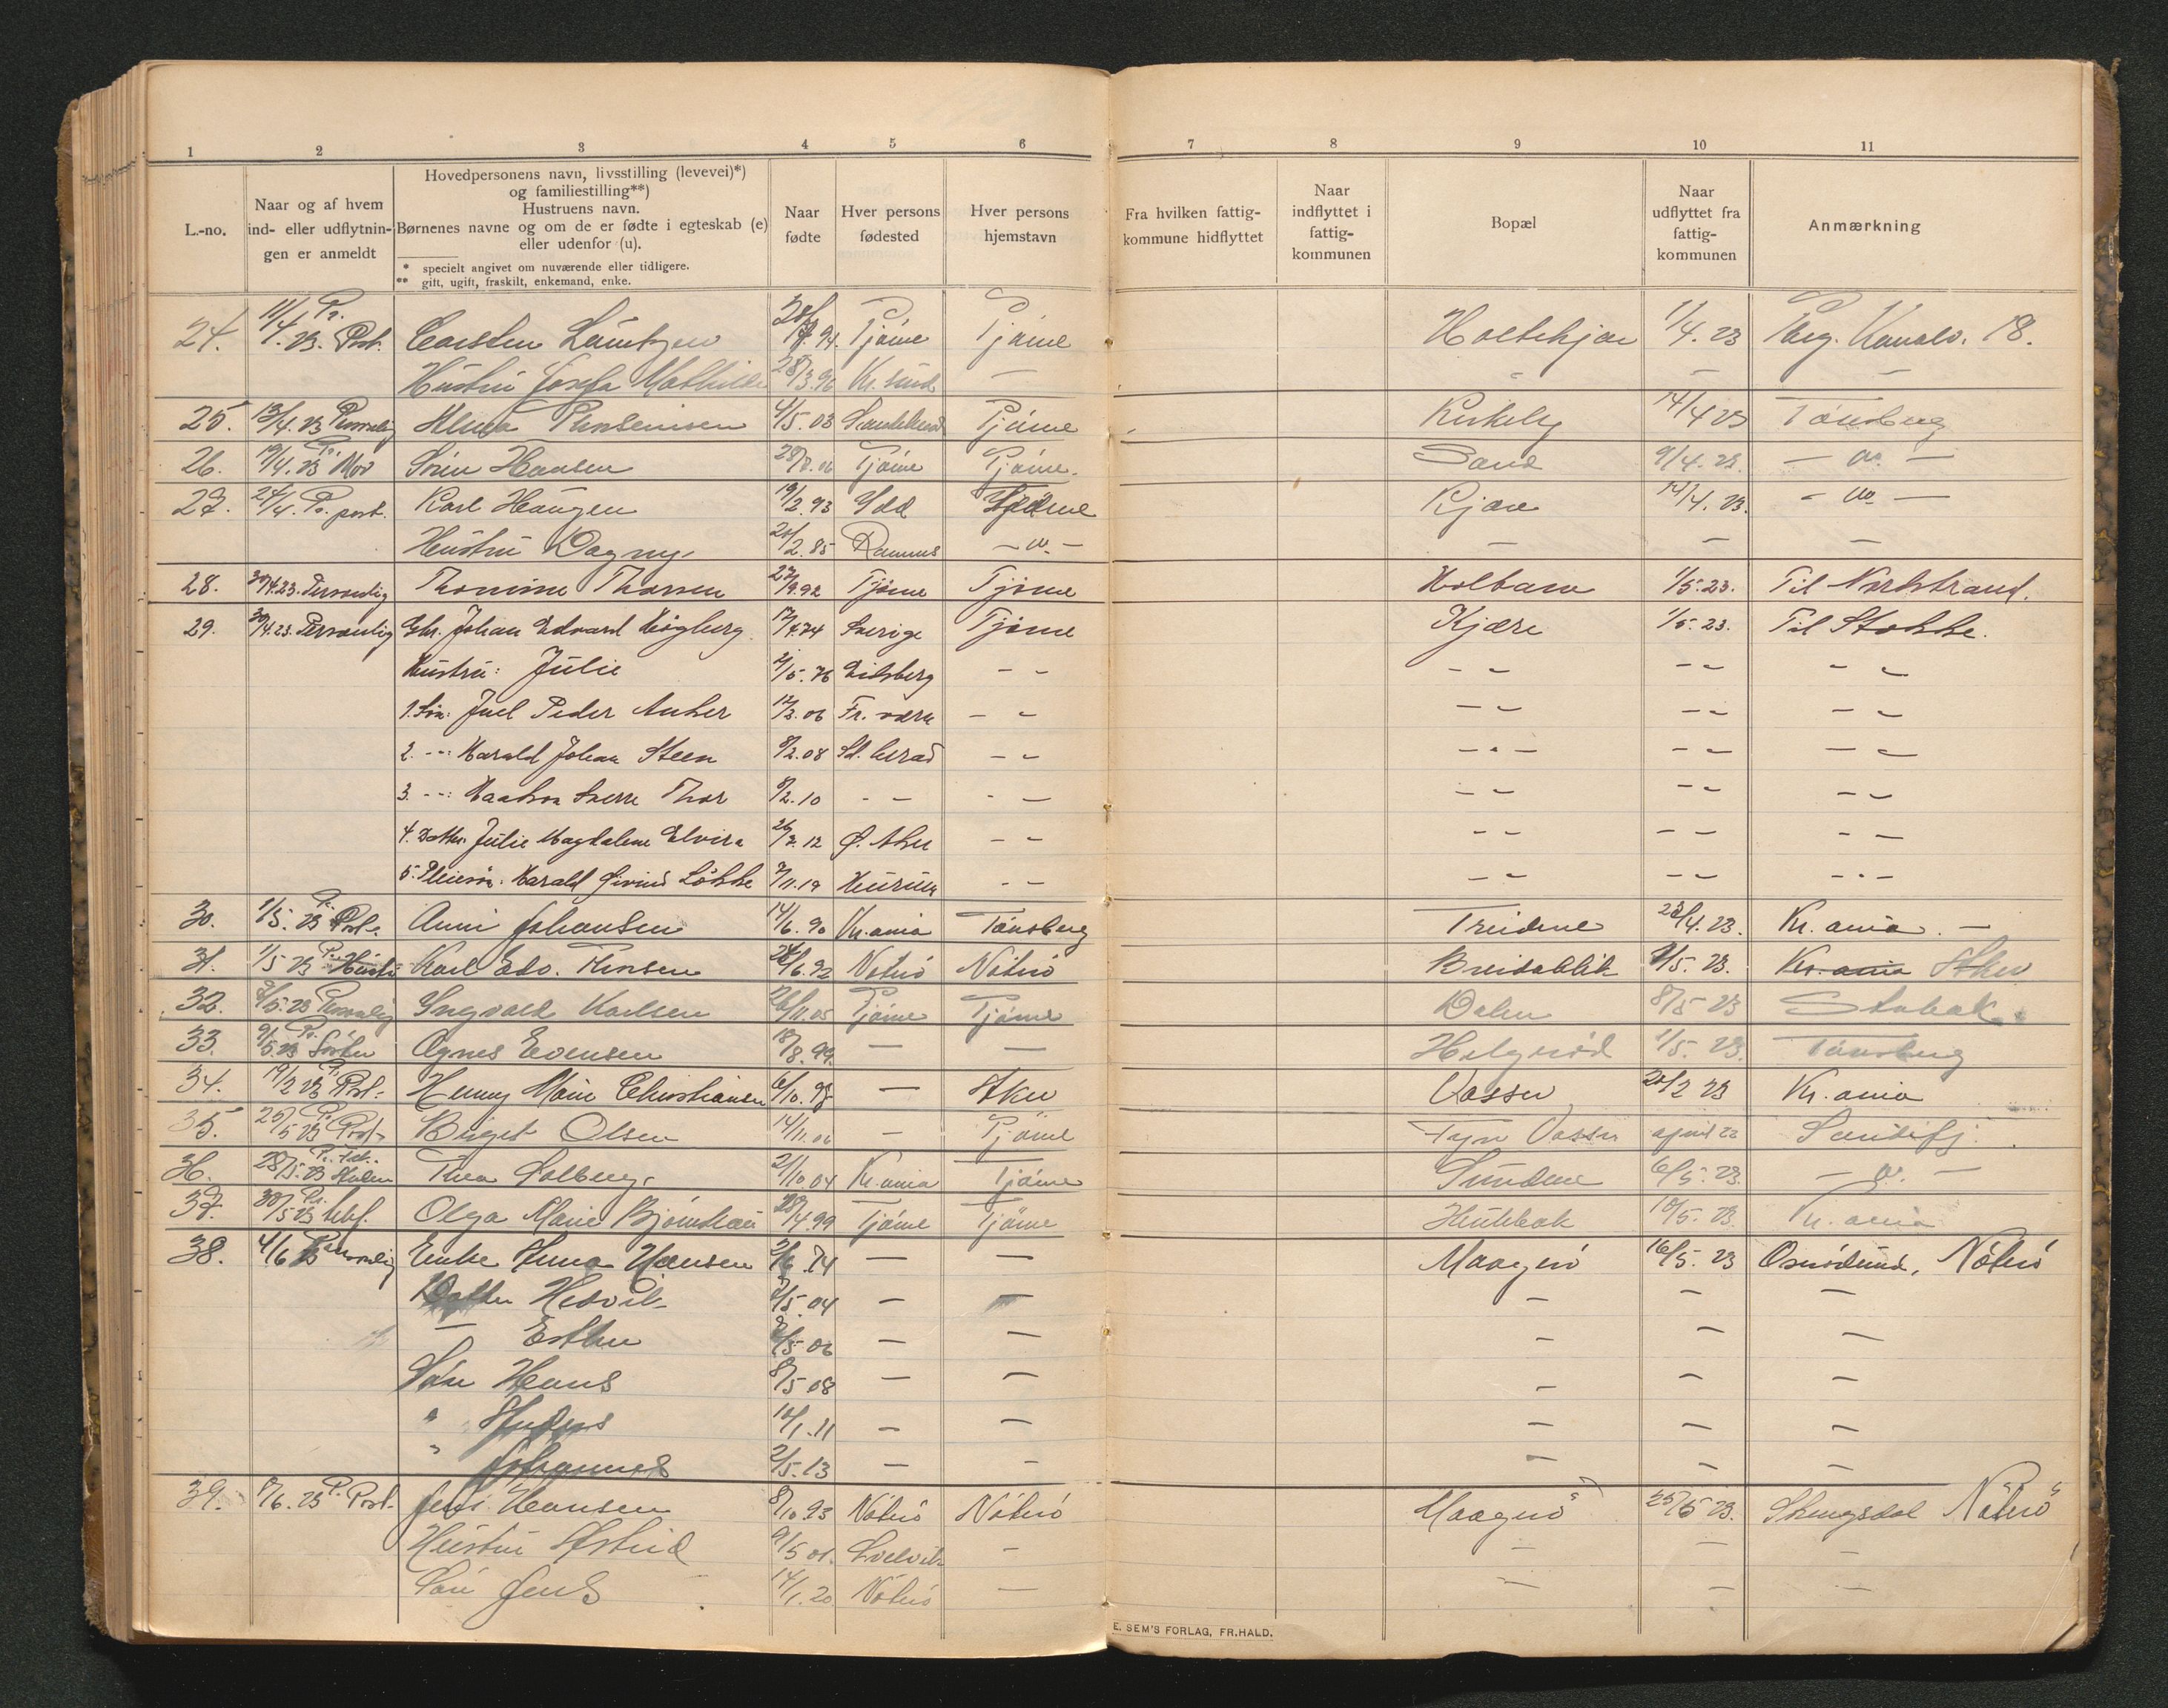 1 2 3 4 5 6 7 8 9 10 11
L.-no.
Naar og af hvem
ind- eller udflytnin-
gen er anmeldt
Hovedpersonens navn, livsstilling (levevei)*)
og familiestilling**)
Hustruens navn.
Børnenes navne og om de er fødte i egteskab (e)
eller udenfor (u).
* specielt angivet om nuværende eller tidligere.
** gift, ugift, fraskilt, enkemand, enke.
Naar
fødte
Hver persons
fødested
Hver persons
hjemstavn
Fra hvilken fattig-
kommune hidflyttet
Naar
indflyttet i
fattig-
kommunen
Bopæl
Naar
udflyttet fra
fattig-
kommunen
Anmærkning
24. 11/4. 23. Pr. Post. Carsten Tjöme Tjöme 1/4. 23 18.
Hustru Josefa Mathilde 28/3.96 Kr.sund — — — —
25. 13/4. 23 Personlig 4/5.03 Tjöme Kirkeby 14/4 23 Tönsberg
26. 19/4. 23 Pr. Mor Sören Hansen 28/8.06 Tjöme Tjöme. Sand 9/4. 23. — do. —
27. 24/4. Pr. post. Karl Haugen 19/2.93 Idd Kjære 14/4. 23. - do. —
Hustru Dagny. 20/2.85 Ramnes — do. — — — —
28. 30/4.23. Personlig Thomine Thorsen 27/9.92 Tjøme Tjøme Holtane 1/5.23. Til Nordstrand.
29. 30/4.23. Personlig Gbr. Johan Edvard Högberg. 17/4.74 Sverige Tjøme Kjære 1/5.23. Til Stokke.
Hustru: Julie 2/5.76 Eidsberg - - - - - - - -
1. Søn: Juel Peder Anker 12/3.06 Fr. værn - - - - - - - -
2. -": Harald Johan Steen 8/2.08 Sd. herad - - - - - - - -
3. -": Haakon Sverre Thor 8/2.10 - - - - - - - - - -
4. Datter Julie Magdalene Elvira 26/7.12 Ø. Aker - - - - - - - -
5. Pleiesøn: Harald Øivind Løkke 7/11.19 Hurum - - - - - - - -
30. 1/5. 23 Pr. Post. Anni Johansen 14/6.90 Kr.ania Tönsberg Treidene 23/4.23. Kr.ania. —
31. 1/5 23 Pr. Hustru Karl Edv. 24/6.92 Nöterö Nöterö Breidablik 1/5. 23. Kr.ania Aker
32. 7/5.23 Personlig Ingvald Karlsen 26/11.05 Tjöme Tjöme Dalen 8/5 23 Stabæk.
33. 9/5.23 Pr. Söster Agnes Evensen 18/8.99. — — Helgeröd 1/5. 23. Tönsberg
34. 19/2 23 Pr. Post. Henny Marie Christiansen — Aker Vasser 20/2 23 Kr.ania
35. 25/5 23 Pr. Post. Birgit Olsen 14/11.06 — Tjöme Vasser april 23 Sandefj.
36. 28/5.23 Thea Solberg. 2/10.04 Kr.ania Tjöme Sundene 6/5. 23. — do. —
37. 30/5 23 Pr. Olga Marie Björnskau 28/4.99 Tjöme Tjöme 10/5. 23. Kr.ania
38. 4/6 23 Personlig Enke Anna Hansen 2/6.74 — — Maagerö 16/5. 23 Nöterö
Datter Hedvik 7/5.04 — — — — —
— Esther 2/5 06 — — — — —
Sön Hans 8/5 08 — — — — —
" Anders 10/1.11 — — — — —
" Johannes 2/5.13 — — — — —
39. 8/6. 23 Pr. Post. Jens Hansen 8/10.93 Nöterö Nöterö Maagerö 25/5 23. Nöterö
Hustru Astrid 9/5 01. Svelvik — — — —
Sön Jens 14/1.20 Nöterö — — — —
E. SEM'S FORLAG, FR.HALD.